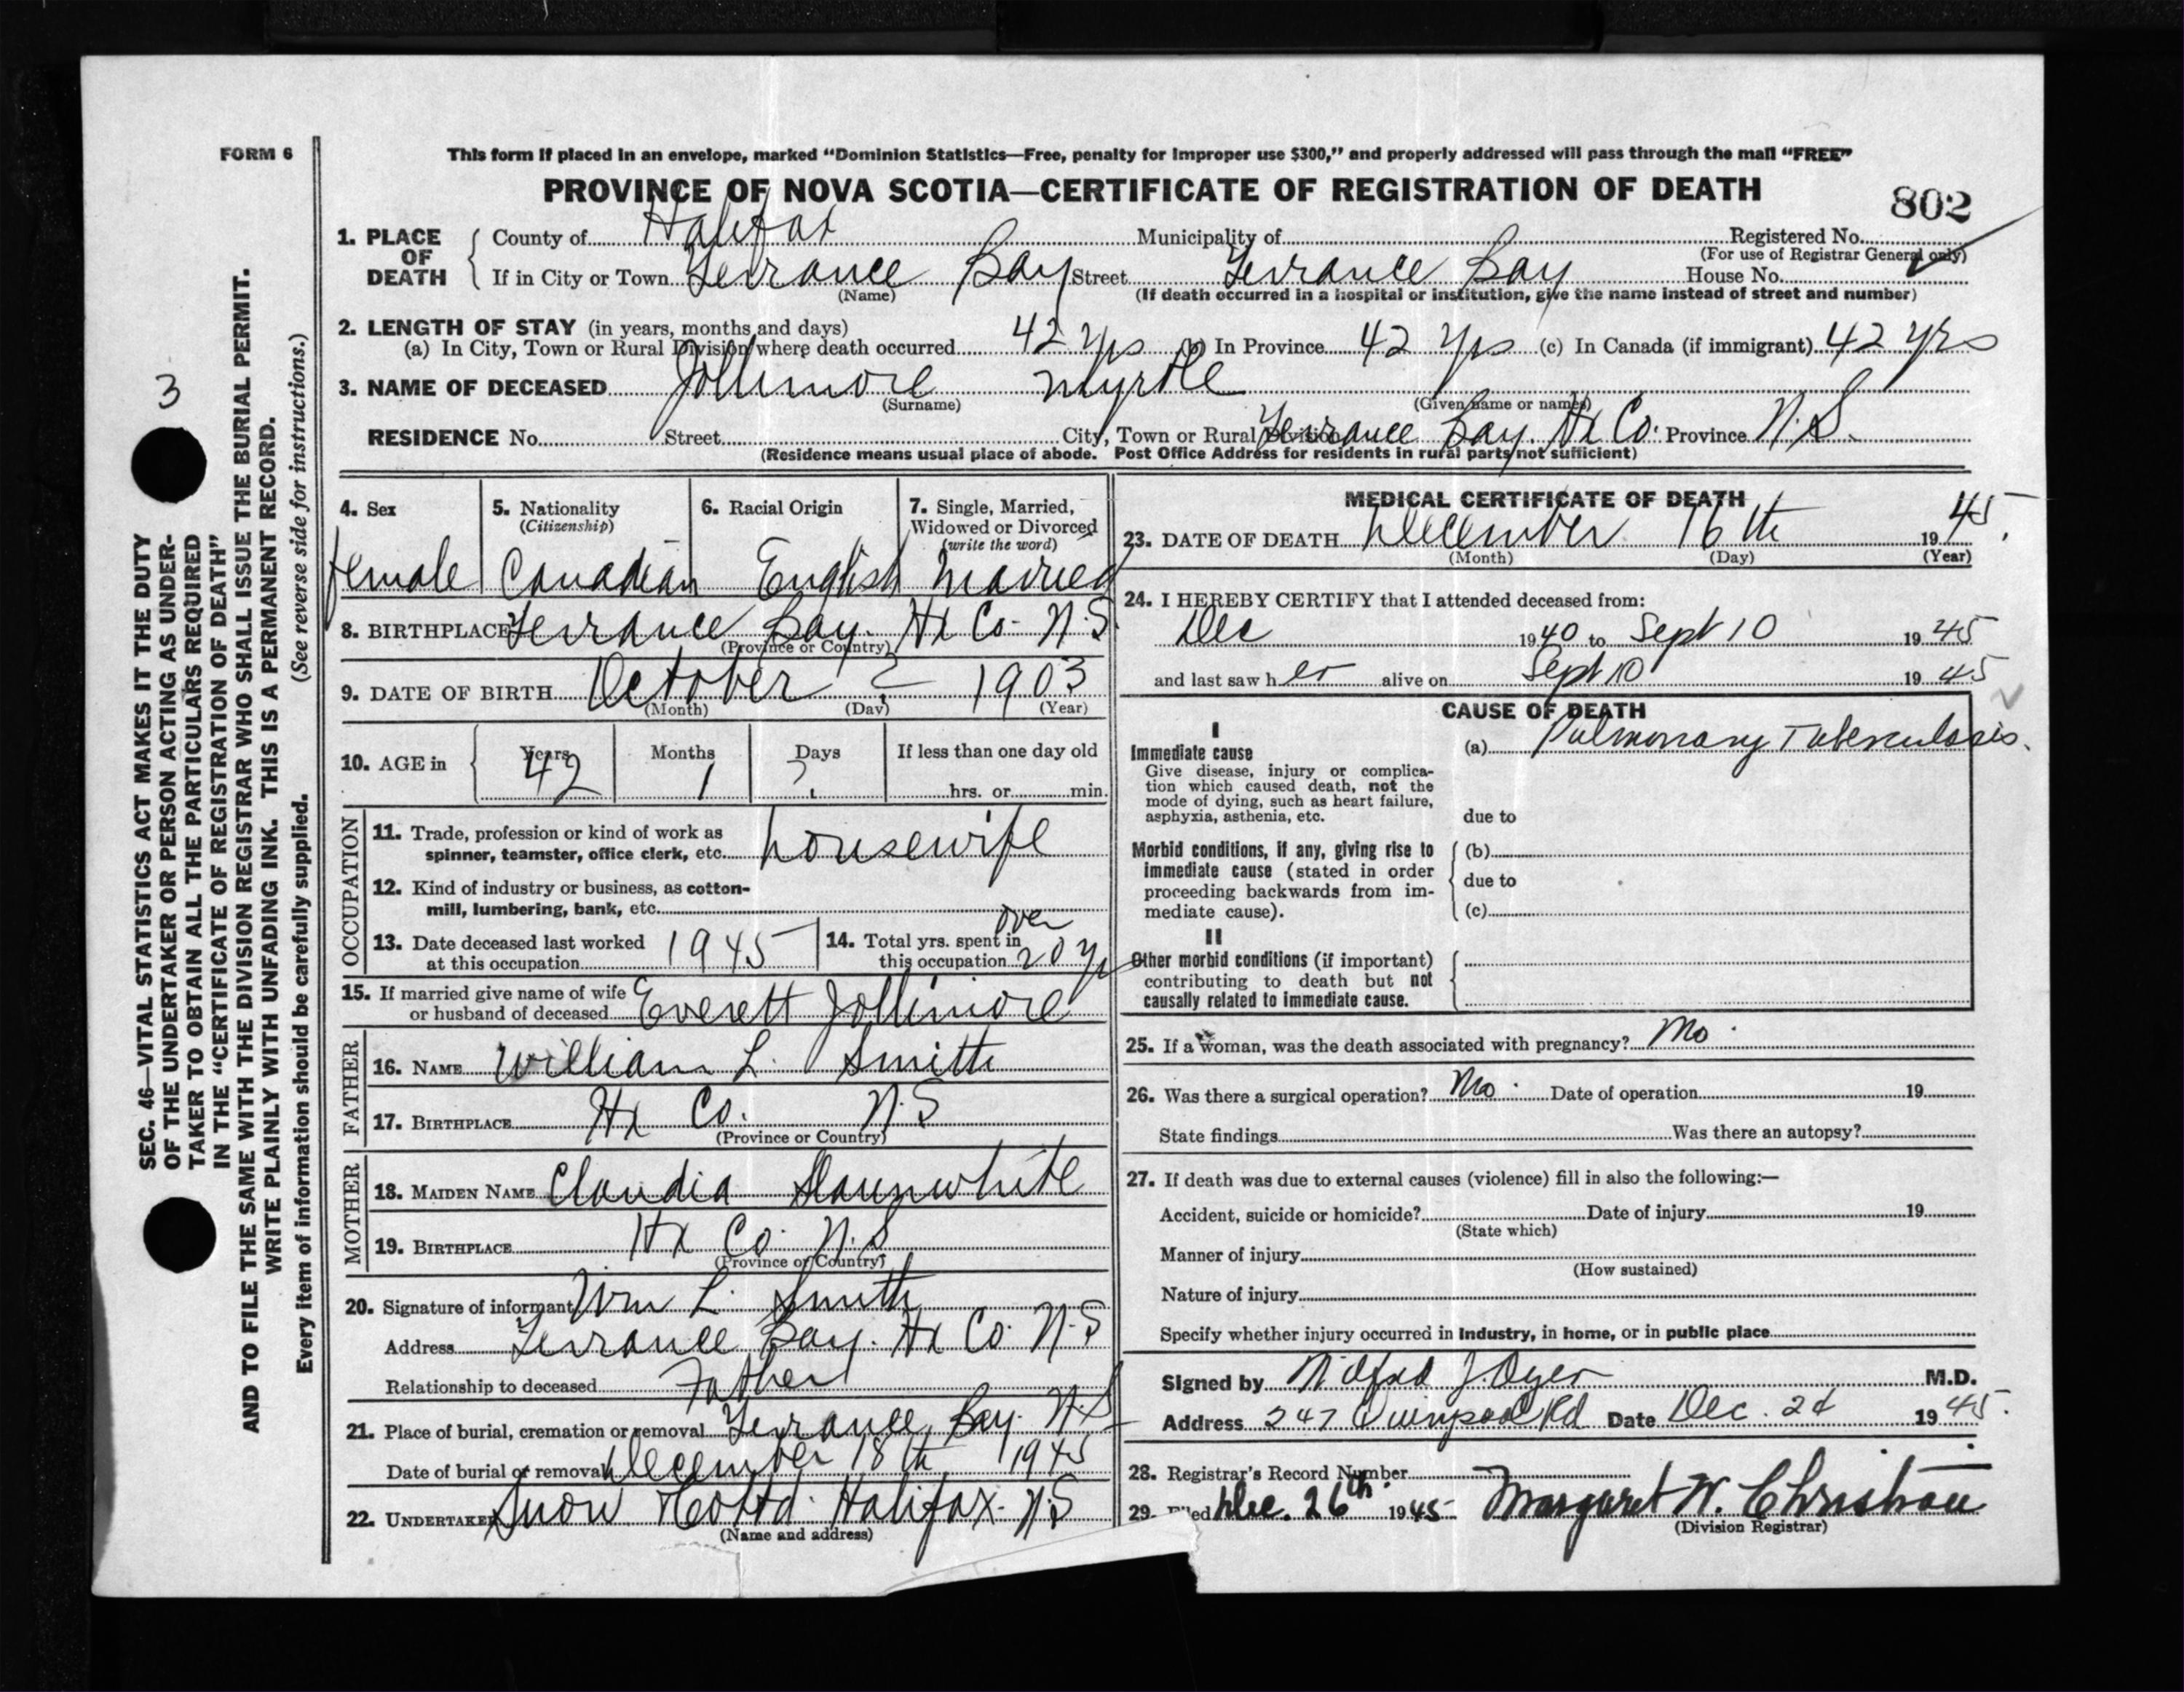 FORM 6
This form if placed in an envelope, marked "Dominion Statistics—Free, penalty for improper use $300," and properly addressed will pass through the mail "FREE"
PROVINCE OF NOVA SCOTIA—CERTIFICATE OF REGISTRATION OF DEATH
802
1. PLACE OF DEATH County of Halifax Municipality of Registered No.
(For use of Registrar General only)
If in City or Town Terrance Bay Street Terrance Bay House No.
(Name) (If death occurred in a hospital or institution, give the name instead of street and number)
2. LENGTH OF STAY (in years, months and days)
(a) In City, Town or Rural Division where death occurred 42 yrs (b) In Province 42 yrs (c) In Canada (if immigrant) 42 yrs
3. NAME OF DECEASED Jollimore Myrtle
(Surname) (Given name or names)
RESIDENCE No. Street City, Town or Rural Division Terrance Bay. Hx Co. Province N.S.
(Residence means usual place of abode. Post Office Address for residents in rural parts not sufficient)
4. Sex 5. Nationality 6. Racial Origin 7. Single, Married,
(Citizenship) Widowed or Divorced
(write the word)
female Canadian English Married
8. BIRTHPLACE Terrance Bay. Hx Co. N.S.
(Province or Country)
9. DATE OF BIRTH October ? 1903
(Month) (Day) (Year)
10. AGE in Years Months Days If less than one day old
42 1 ? hrs. or min.
OCCUPATION
11. Trade, profession or kind of work as
spinner, teamster, office clerk, etc. housewife
12. Kind of industry or business, as cotton-
mill, lumbering, bank, etc.
13. Date deceased last worked
at this occupation 1945
14. Total yrs. spent in
this occupation over 20 yr
15. If married give name of wife
or husband of deceased Everett Jollimore
FATHER
16. NAME William L. Smith
17. BIRTHPLACE Hx Co. N.S
(Province or Country)
MOTHER
18. MAIDEN NAME Claudia Slaunwhite
19. BIRTHPLACE Hx Co. N.S
(Province or Country)
20. Signature of informant Wm L. Smith
Address Terrance Bay. Hx Co. N.S
Relationship to deceased Father
21. Place of burial, cremation or removal Terrance Bay. N.S
Date of burial or removal December 18th 1945
22. UNDERTAKER Snow Co Ltd. Halifax. N.S
(Name and address)
MEDICAL CERTIFICATE OF DEATH
23. DATE OF DEATH December 16th 1945.
(Month) (Day) (Year)
24. I HEREBY CERTIFY that I attended deceased from:
Dec 1940 to Sept 10 1945
and last saw her alive on Sept 10 1945
CAUSE OF DEATH
I
Immediate cause (a) Pulmonary Tuberculosis.
Give disease, injury or complica-
tion which caused death, not the
mode of dying, such as heart failure,
asphyxia, asthenia, etc. due to
Morbid conditions, if any, giving rise to (b)
immediate cause (stated in order due to
proceeding backwards from im-
mediate cause). (c)
II
Other morbid conditions (if important)
contributing to death but not
causally related to immediate cause.
25. If a woman, was the death associated with pregnancy? No.
26. Was there a surgical operation? No. Date of operation 19
State findings Was there an autopsy?
27. If death was due to external causes (violence) fill in also the following:—
Accident, suicide or homicide? Date of injury 19
(State which)
Manner of injury
(How sustained)
Nature of injury
Specify whether injury occurred in industry, in home, or in public place
Signed by J Dyer M.D.
Address 247 Quinpool Rd Date Dec. 24 1945.
28. Registrar's Record Number
29. Filed Dec. 26th 1945 Margaret W. Christian
(Division Registrar)
3
SEC. 46—VITAL STATISTICS ACT MAKES IT THE DUTY
OF THE UNDERTAKER OR PERSON ACTING AS UNDER-
TAKER TO OBTAIN ALL THE PARTICULARS REQUIRED
IN THE "CERTIFICATE OF REGISTRATION OF DEATH"
AND TO FILE THE SAME WITH THE DIVISION REGISTRAR WHO SHALL ISSUE THE BURIAL PERMIT.
WRITE PLAINLY WITH UNFADING INK. THIS IS A PERMANENT RECORD.
Every item of information should be carefully supplied. (See reverse side for instructions.)